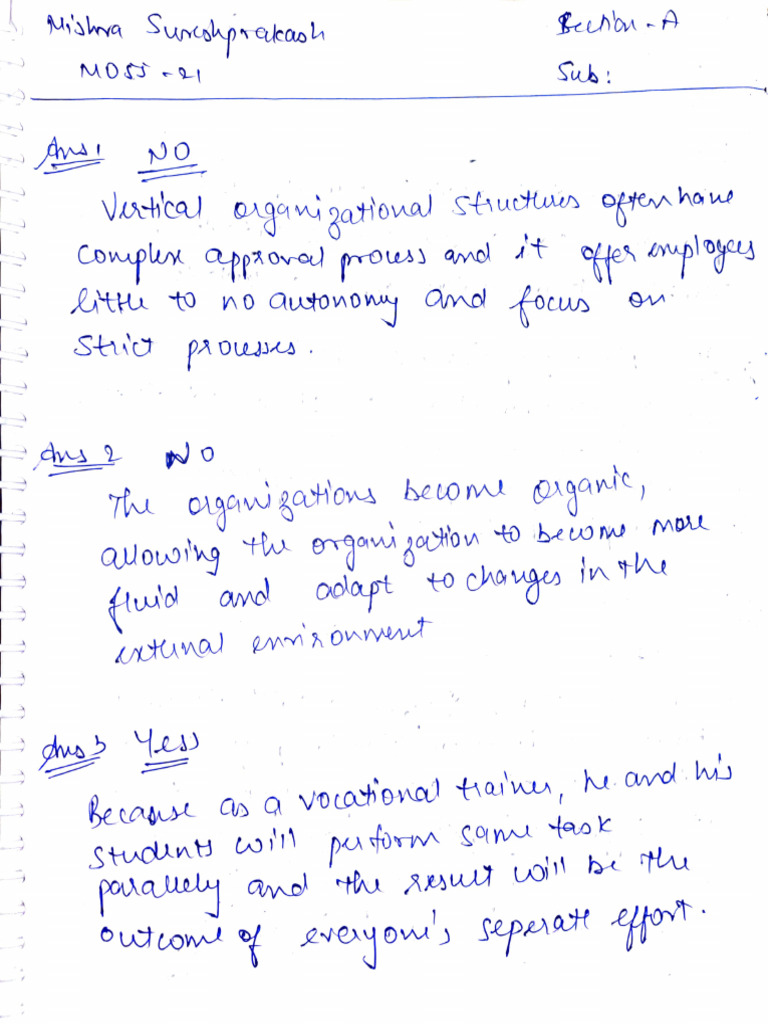 Mishra Sureshprakash
Section - A
MOSS - 21
Sub:
Ans 1 NO
Vertical organizational structures often have
complex approval process and it offer employees
little to no autonomy and focus on
strict processes.
Ans 2 NO
The organizations become organic,
allowing the organization to become more
fluid and adapt to changes in the
external environment
Ans 3 Yess
Because as a vocational trainer, he and his
students will perform same task
parallely and the result will be the
outcome of everyone's seperate effort.